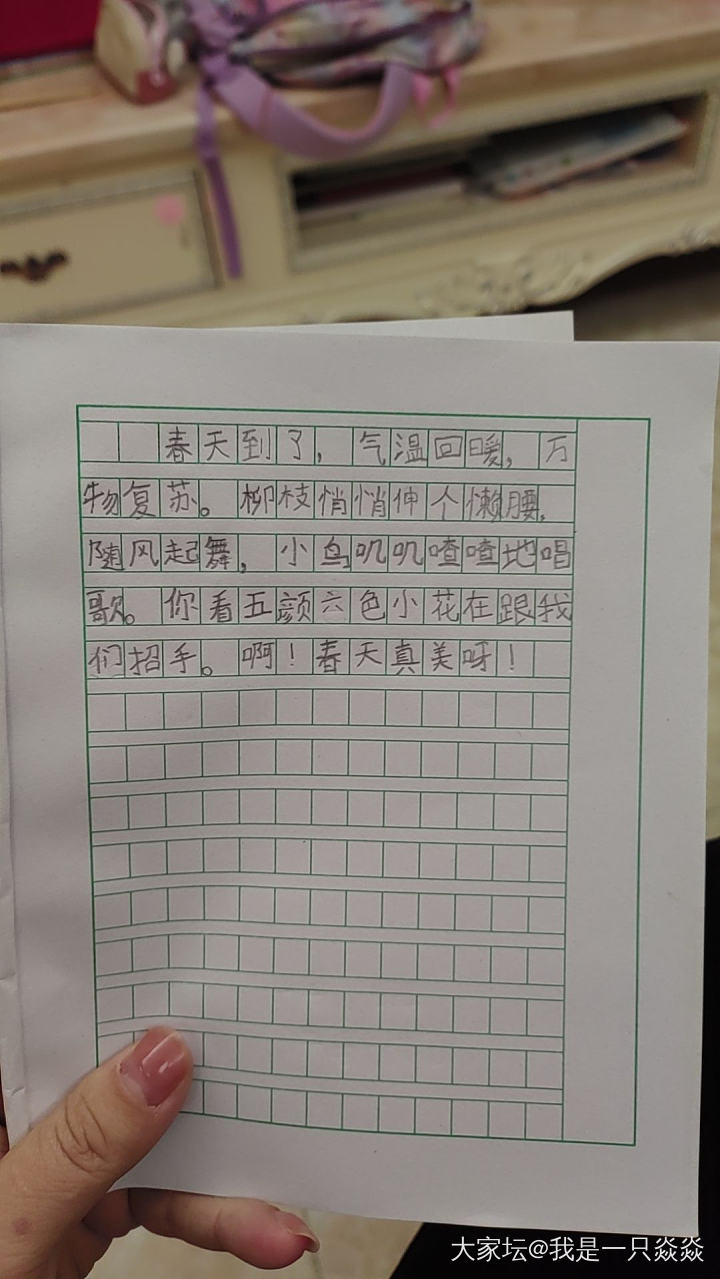 春天到了，气温回暖，万
物复苏。柳枝悄悄伸个懒腰，
随风起舞，小鸟叽叽喳喳地唱
歌。你看五颜六色小花在跟我
们招手。啊！春天真美呀！
大家坛@我是一只焱焱